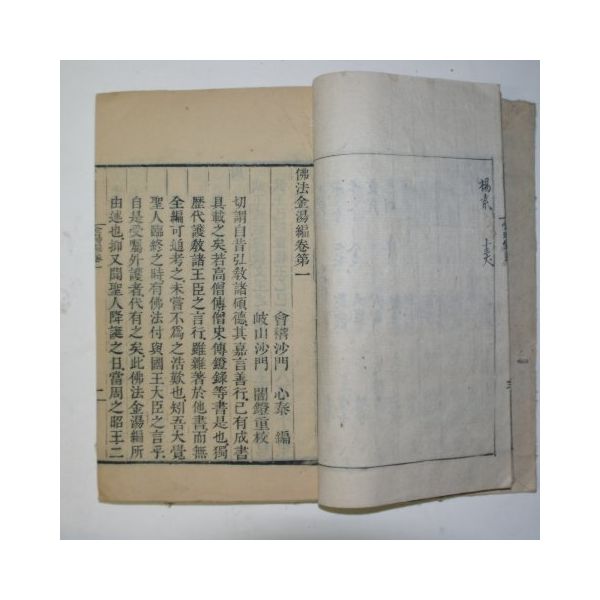 楊素
佛法金湯編卷第一
會稽沙門 心泰 編
岐山沙門 闇鐙重校
切謂自昔弘教諸碩德其嘉言善行已有成書
具載之矣若高僧傳僧史傳鐙錄等書是也獨
歷代護敎諸王臣之言行雖雜著於他書而無
全編可通考之未嘗不爲之浩歎也矧吾大覺
聖人臨終之時有佛法付與國王大臣之言乎
自是受囑外護者代有之矣此佛法金湯編所
由述也抑又聞聖人降誕之日當周之昭王二